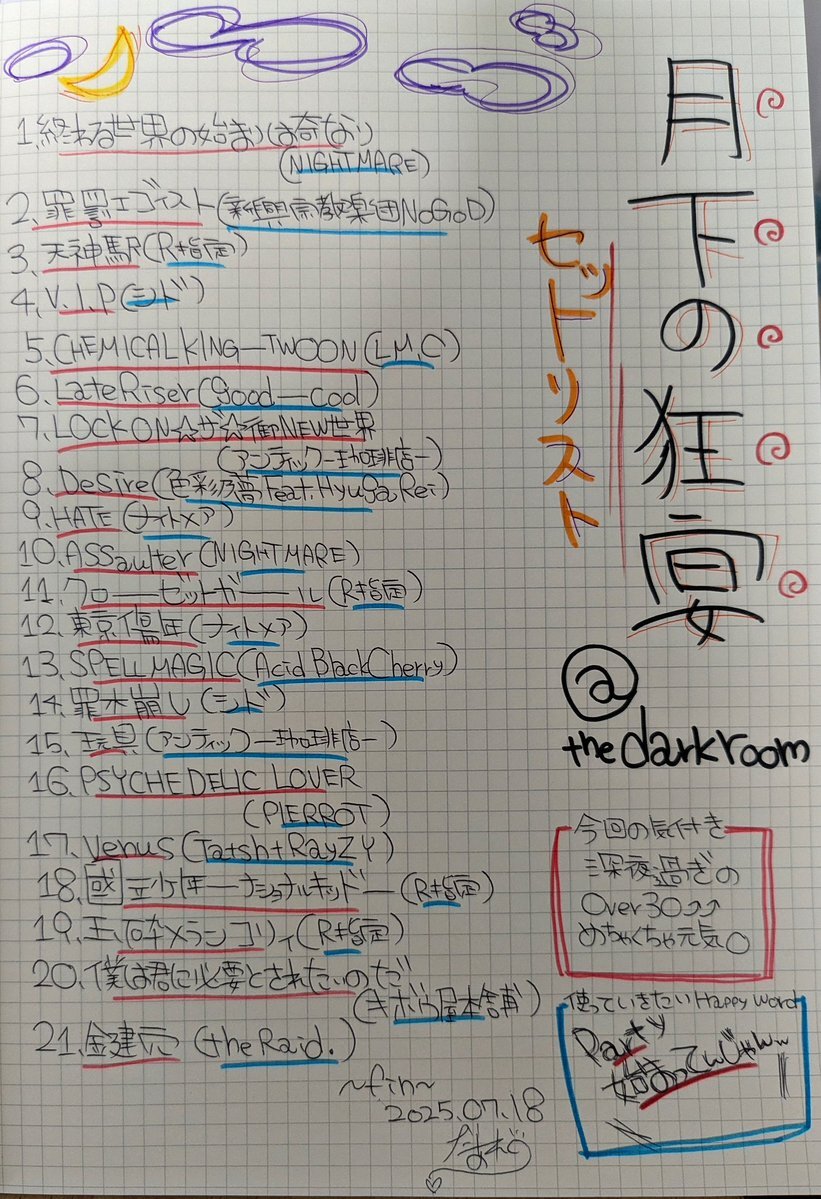 月下の狂宴
セットリスト
@
the darkroom
1.終わる世界の始まりは奇なり
(NIGHTMARE)
2.罪罰エゴイスト(新興宗教楽団NoGoD)
3.天神駅(R指定)
4.V.I.P(シド)
5.CHEMICAL KING-TWOON(LM.C)
6.LateRiser(good-cool)
7.LOCK ON☆ザ☆御NEW世界
(アンティック-珈琲店-)
8.Desire(色彩乃夢Feat.Hyuga Rei)
9.HATE(ナイトメア)
10.ASSaulter(NIGHTMARE)
11.クローゼットガール(R指定)
12.東京傷年(ナイトメア)
13.SPELL MAGIC(Acid BlackCherry)
14.罪木崩し(シド)
15.玩具(アンティック-珈琲店-)
16.PSYCHEDELIC LOVER
(PIERROT)
17.Venus(Tatsh+RayZY)
18.國立少年-ナショナルキッド-(R指定)
19.玉砕メランコリィ(R指定)
20.僕は君に必要とされたいのだ
(キボウ屋本舗)
21.(the Raid.)
~fin~
2025.07.18
今回の気付き
深夜過ぎの
Over30↑↑
めちゃくちゃ元気○
使っていきたいHappy word
Party
始まってんじゃんw